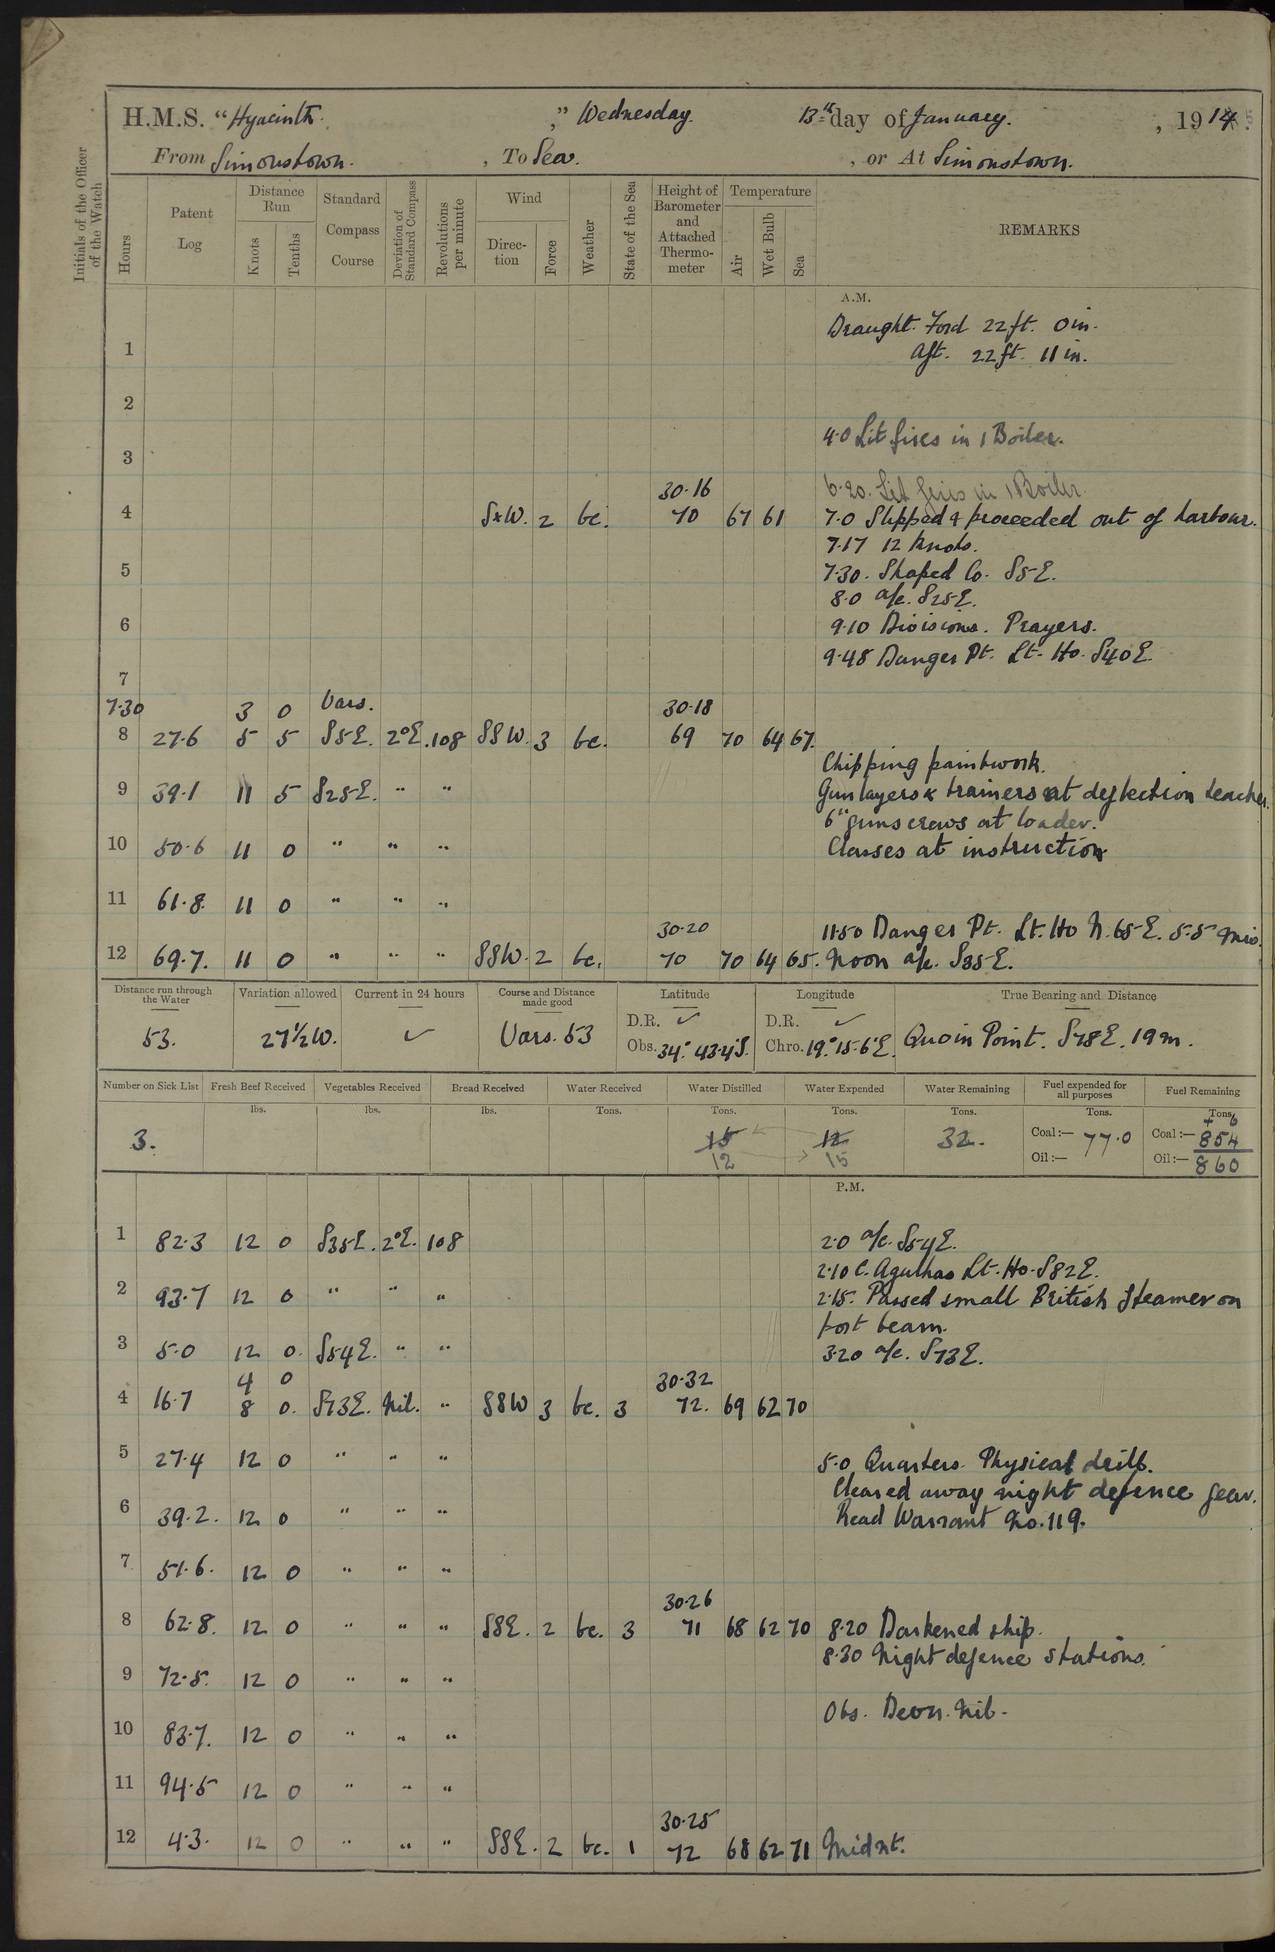 H.M.S. "Hyacinth." Wednesday. 13th day of January. , 1914.
From Simonstown. , To Sea. , or At Simonstown.
Initials of the Officer of the Watch
Hours
Patent Log
Distance Run
Knots
Tenths
Standard Compass Course
Deviation of Standard Compass
Revolutions per minute
Wind
Direc-tion
Force
Weather
State of the Sea
Height of Barometer and Attached Thermo-meter
Temperature
Air
Wet Bulb
Sea
REMARKS
A.M.
Draught. Ford 22ft. 0in.
1 Aft. 22ft. 11in.
2
4.0 Lit fires in 1 Boiler.
3
30.16 6.20. Lit fires in 1 Boiler.
4 SxW. 2 bc. 70 67 61 7.0 Slipped & proceeded out of harbour.
7.17 12 knots.
5 7.30. Shaped Co. S5E.
8.0 a/c. S25E.
6 9.10 Divisions. Prayers.
9.48 Danger Pt. Lt. Ho. S40E
7
7.30 3 0 Vars. 30.18
8 27.6 5 5 S5E. 2°E. 108 SSW. 3 bc. 69 70 64 67.
Chipping paintwork.
9 39.1 11 5 S25E. " " Gunlayers & trainers at deflection teacher.
6" guns crews at loader.
10 50.6 11 0 " " " Classes at instruction
11 61.8. 11 0 " " "
30.20 11.50 Danger Pt. Lt. Ho N.65E. 5.5 mis.
12 69.7. 11 0 " " " SSW. 2 bc. 70 70 64 65. Noon a/c. S35E.
Distance run through the Water
Variation allowed
Current in 24 hours
Course and Distance made good
Latitude
Longitude
True Bearing and Distance
D.R. ✓ D.R. ✓
53. 27½W. ✓ Vars. 53 Obs. 34° 43.4'S. Chro. 19° 15.6'E. Quoin Point. S78E. 19m.
Number on Sick List Fresh Beef Received Vegetables Received Bread Received Water Received Water Distilled Water Expended Water Remaining Fuel expended for all purposes Fuel Remaining
lbs. lbs. lbs. Tons. Tons. Tons. Tons. Tons. Tons
+ 6
3. 15 12 32. Coal:— 77.0 Coal:— 854
12 15 Oil:— Oil:— 860
P.M.
1 82.3 12 0 S35E. 2°E. 108 2.0 a/c. S54E.
2.10 C. Agulhas Lt. Ho. S82E.
2 93.7 12 0 " " " 2.15. Passed small British Steamer on
port beam.
3 5.0 12 0. S54E. " " 3.20 a/c. S73E.
4 0 30.32
4 16.7 8 0. S73E. Nil. " SSW 3 bc. 3 72. 69 62 70
5 27.4 12 0 " " " 5.0 Quarters. Physical drill.
Cleared away night defence gear.
6 39.2. 12 0 " " " Read Warrant No. 119.
7 51.6. 12 0 " " "
30.26
8 62.8. 12 0 " " " SSE. 2 bc. 3 71 68 62 70 8.20 Darkened ship.
8.30 Night defence stations.
9 72.5. 12 0 " " "
Obs. Devn. Nil.
10 83.7. 12 0 " " "
11 94.5 12 0 " " "
30.25
12 4.3. 12 0 " " " SSE. 2 bc. 1 72 68 62 71 Midnt.